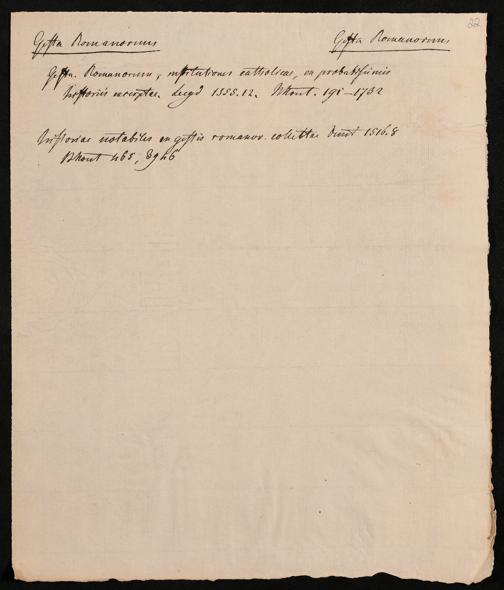 22
Gesta Romanorum Gesta Romanorum
Gesta Romanorum, institutiones catholicae, ex probatissimis
historiis excerptae. Lugd 1555.12. Bkout. 191–1732
historiae notabiles ex gestis romanor. collectae 1516.8
Bkout 465, 3946